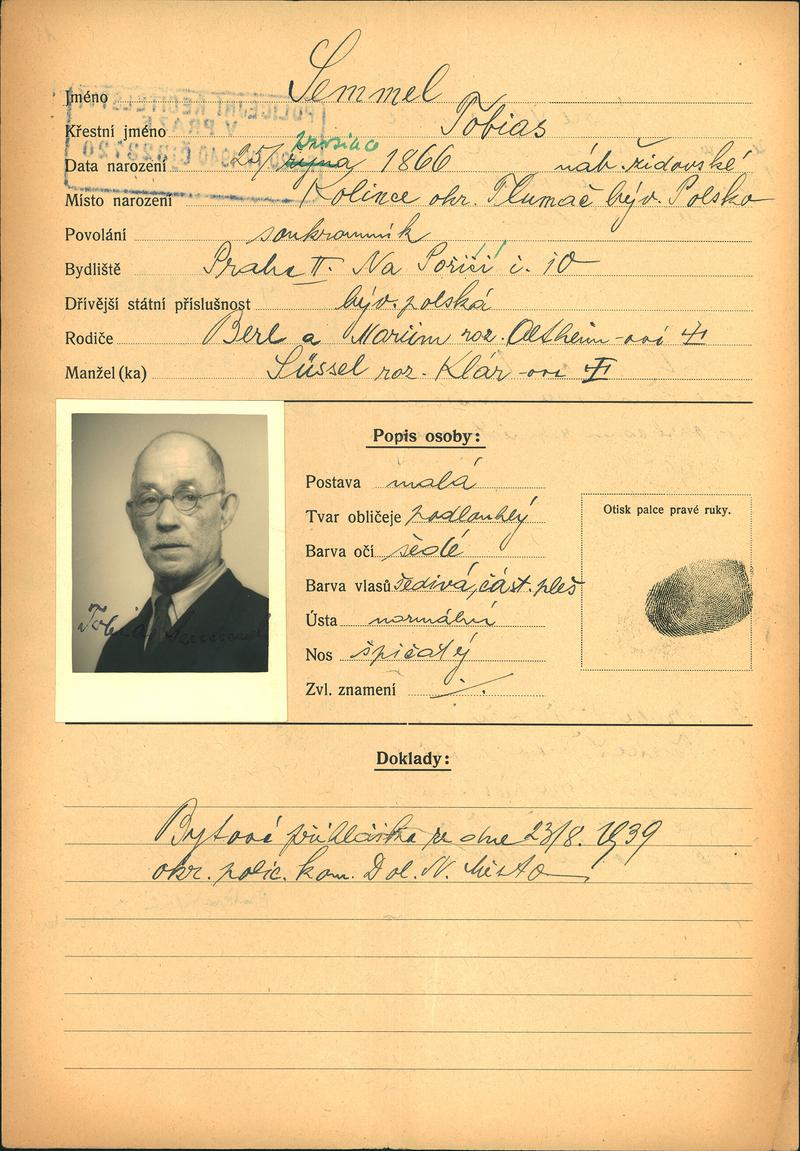 Jméno Semmel
Křestní jméno Tobias
Data narození 25/ října 1866 náb. židovské
Místo narození Kolince okr. Tlumač býv. Polsko
Povolání soukromník
Bydliště Praha II. Na Poříčí č. 10
Dřívější státní příslušnost býv. polská
Rodiče Berl a Mariim roz. -ovi
Manžel(ka) Süssel roz. Klár -ovi
Popis osoby:
Postava malá
Tvar obličeje podlouhlý
Barva očí šedé
Barva vlasů šedivá, část. pleš
Ústa normální
Nos špičatý
Zvl. znamení ./.
Otisk palce pravé ruky.
Tobias Semmel
Doklady:
Bytová přihláška ze dne 23/8. 1939
okr. polic. kom. Dol. N. Město